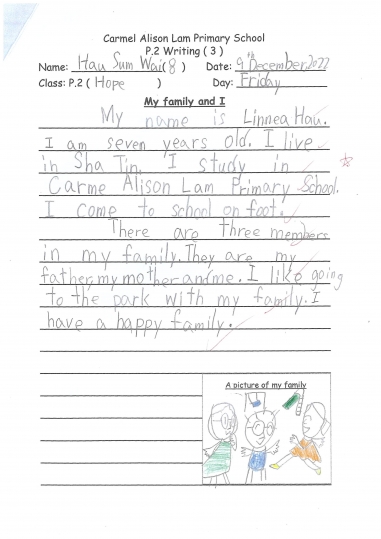 Carmel Alison Lam Primary School
P.2 Writing ( 3 )
Name: Hau Sum Wai( 8 ) Date: 9th December, 2022
Class: P.2 ( Hope ) Day: Friday
My family and I
My name is Linnea Hau.
I am seven years old. I live
in Sha Tin. I study in
Carme Alison Lam Primary School.
I come to school on foot.
There are three members
in my family. They are my
father, my mother and me. I like going
to the park with my family. I
have a happy family.
A picture of my family